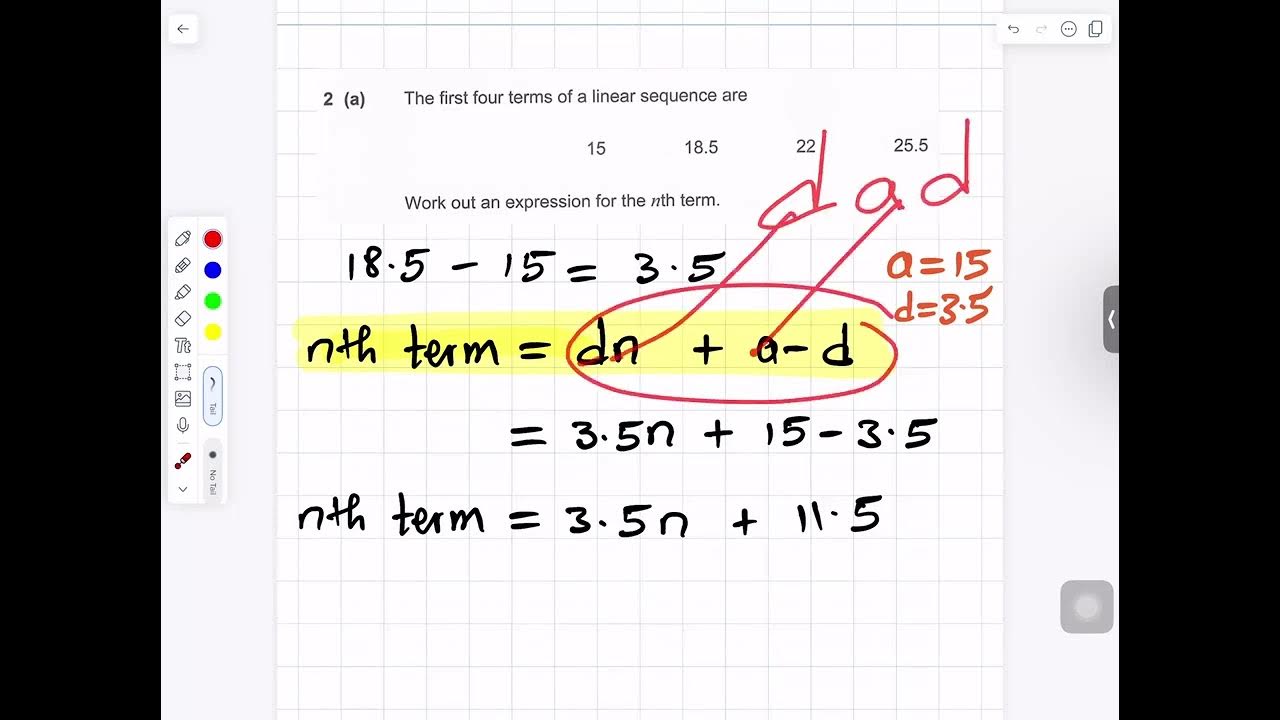 2 (a) The first four terms of a linear sequence are
15 18.5 22 25.5
d a d
Work out an expression for the nth term.
18.5 - 15 = 3.5
a = 15
d = 3.5
nth term = dn + a - d
= 3.5n + 15 - 3.5
nth term = 3.5n + 11.5
Tt
Tail
No Tail